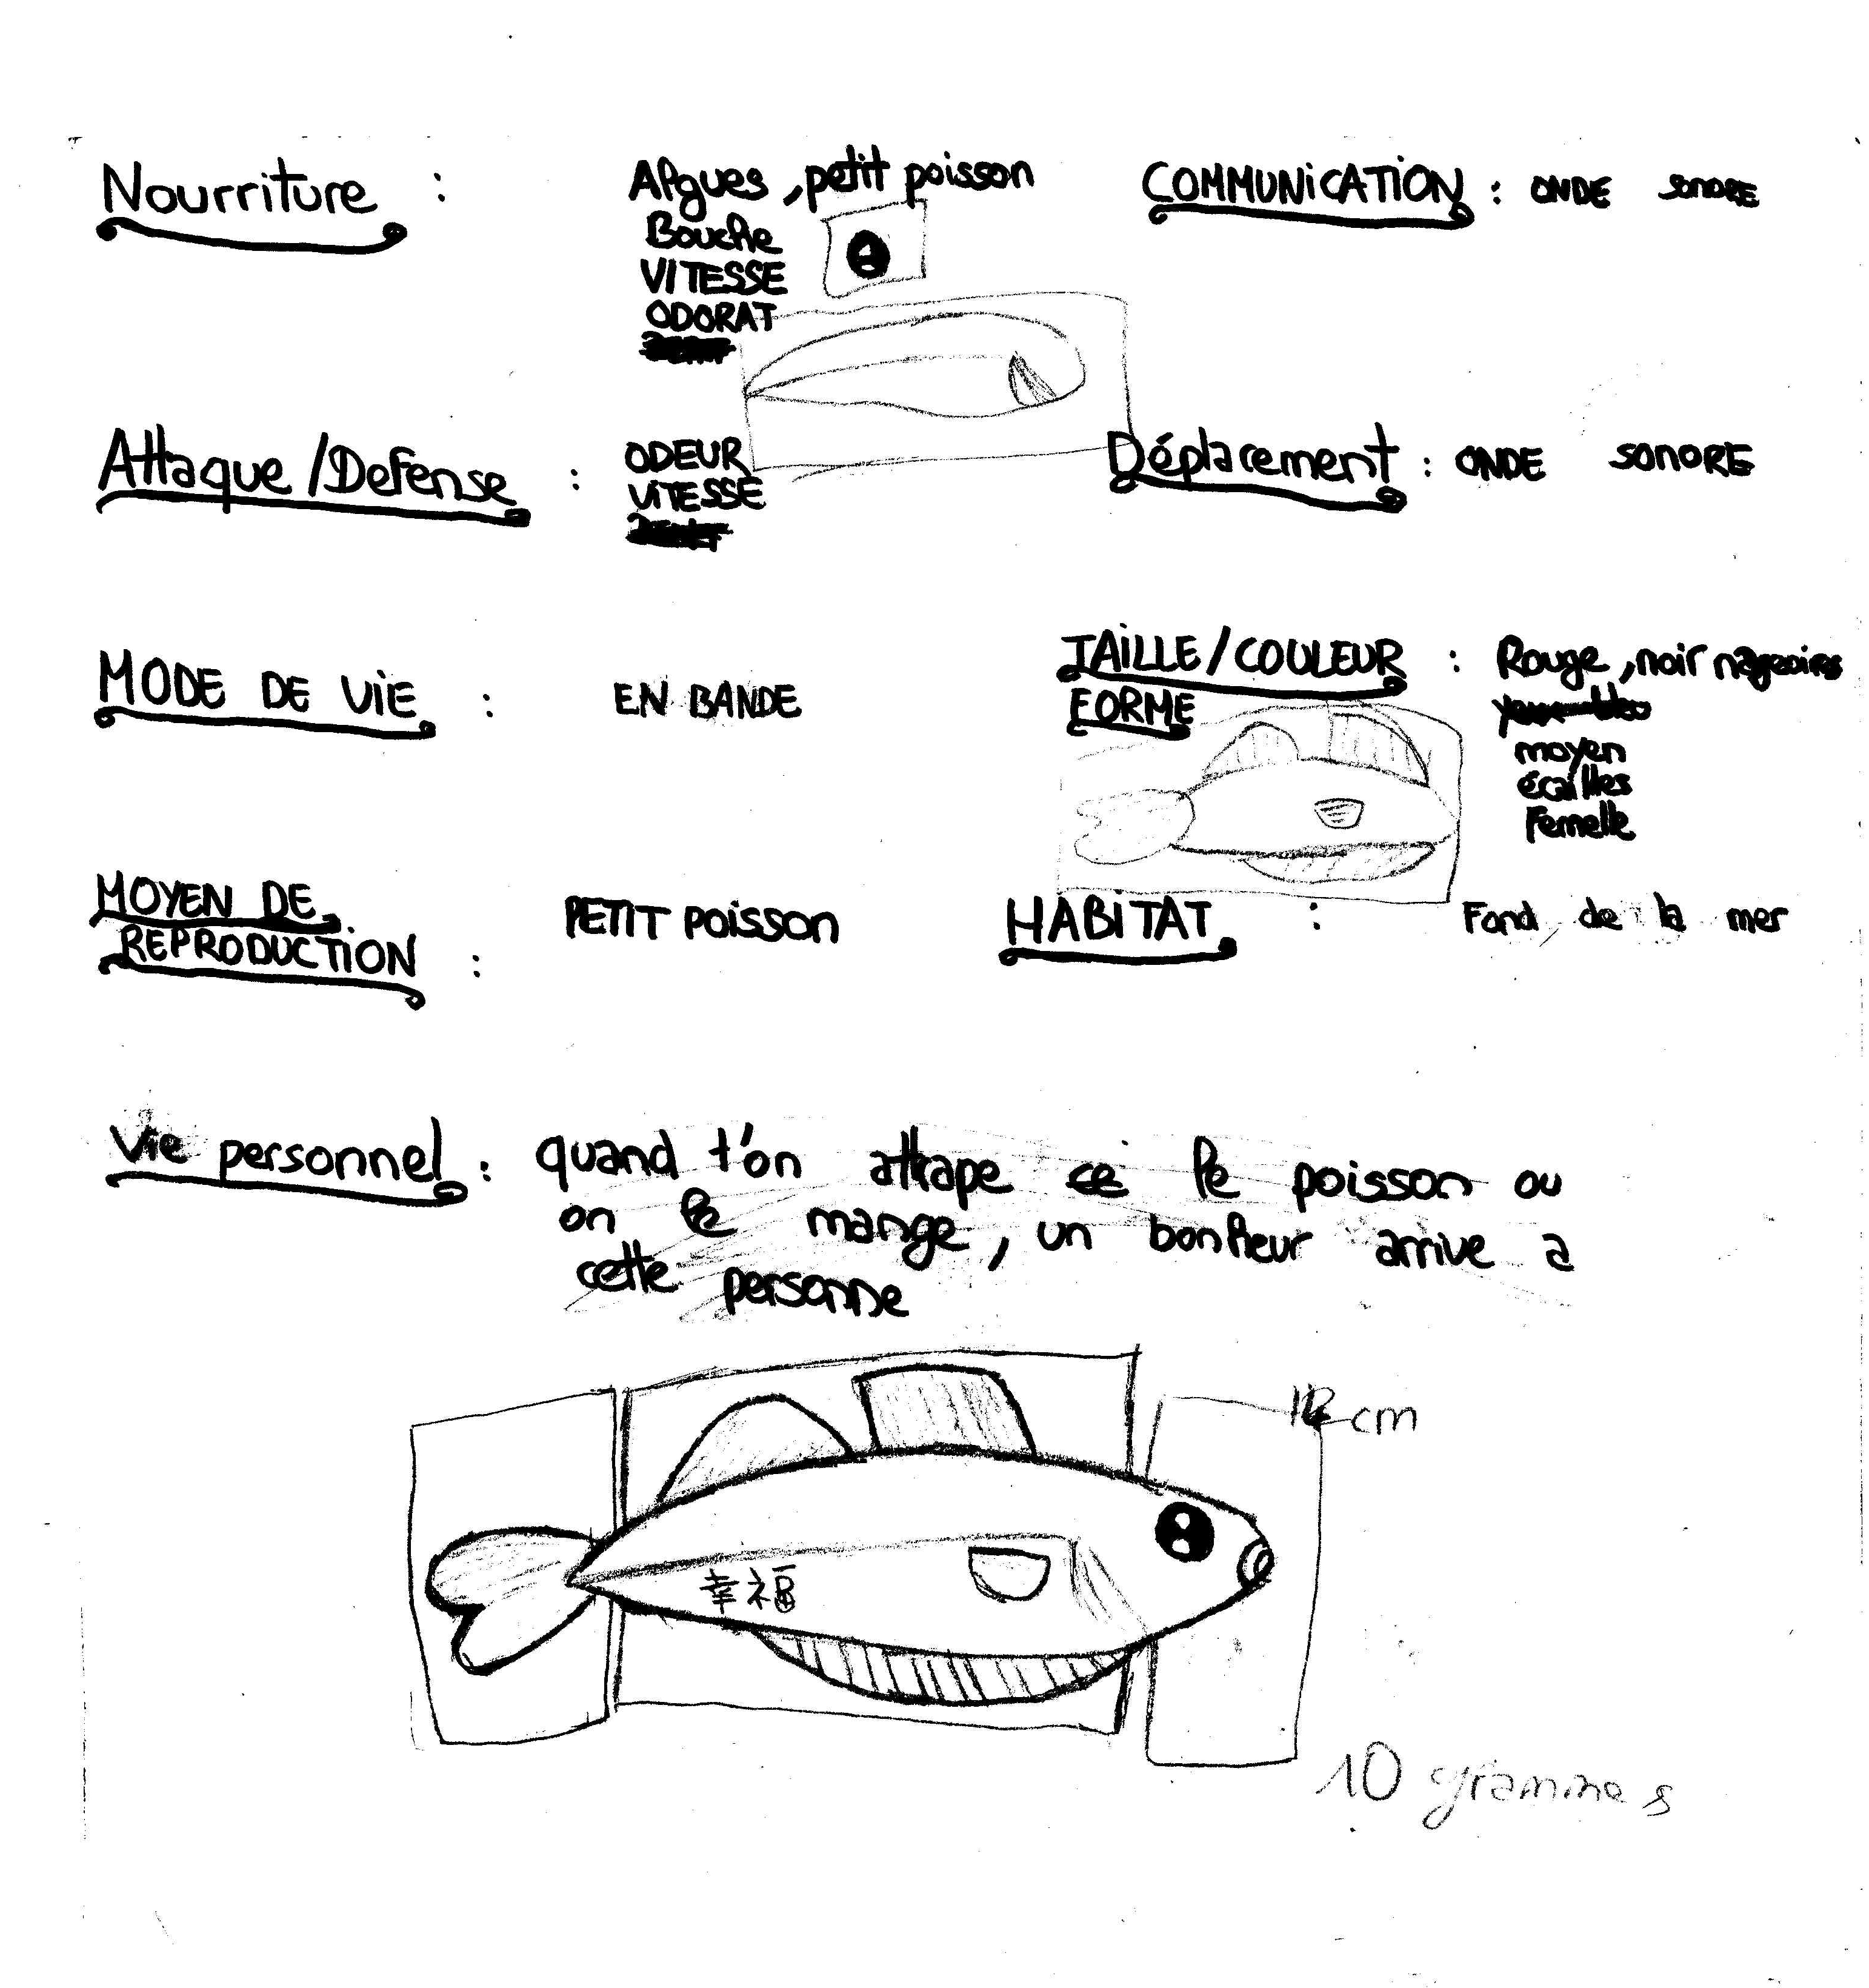 Nourriture : Algues, petit poisson
Bouche
VITESSE
ODORAT
COMMUNICATION : ONDE SONORE
Attaque/Defense : ODEUR
VITESSE
Déplacement : ONDE SONORE
MODE DE VIE : EN BANDE
TAILLE/COULEUR : Rouge, noir nageoires
FORME
moyen
écailles
Femelle
MOYEN DE
REPRODUCTION : PETIT Poisson
HABITAT : Fond de la mer
Vie personnel : quand t'on attrape le poisson ou
on le mange, un bonheur arrive a
cette personne
cm
幸福
10 grammes